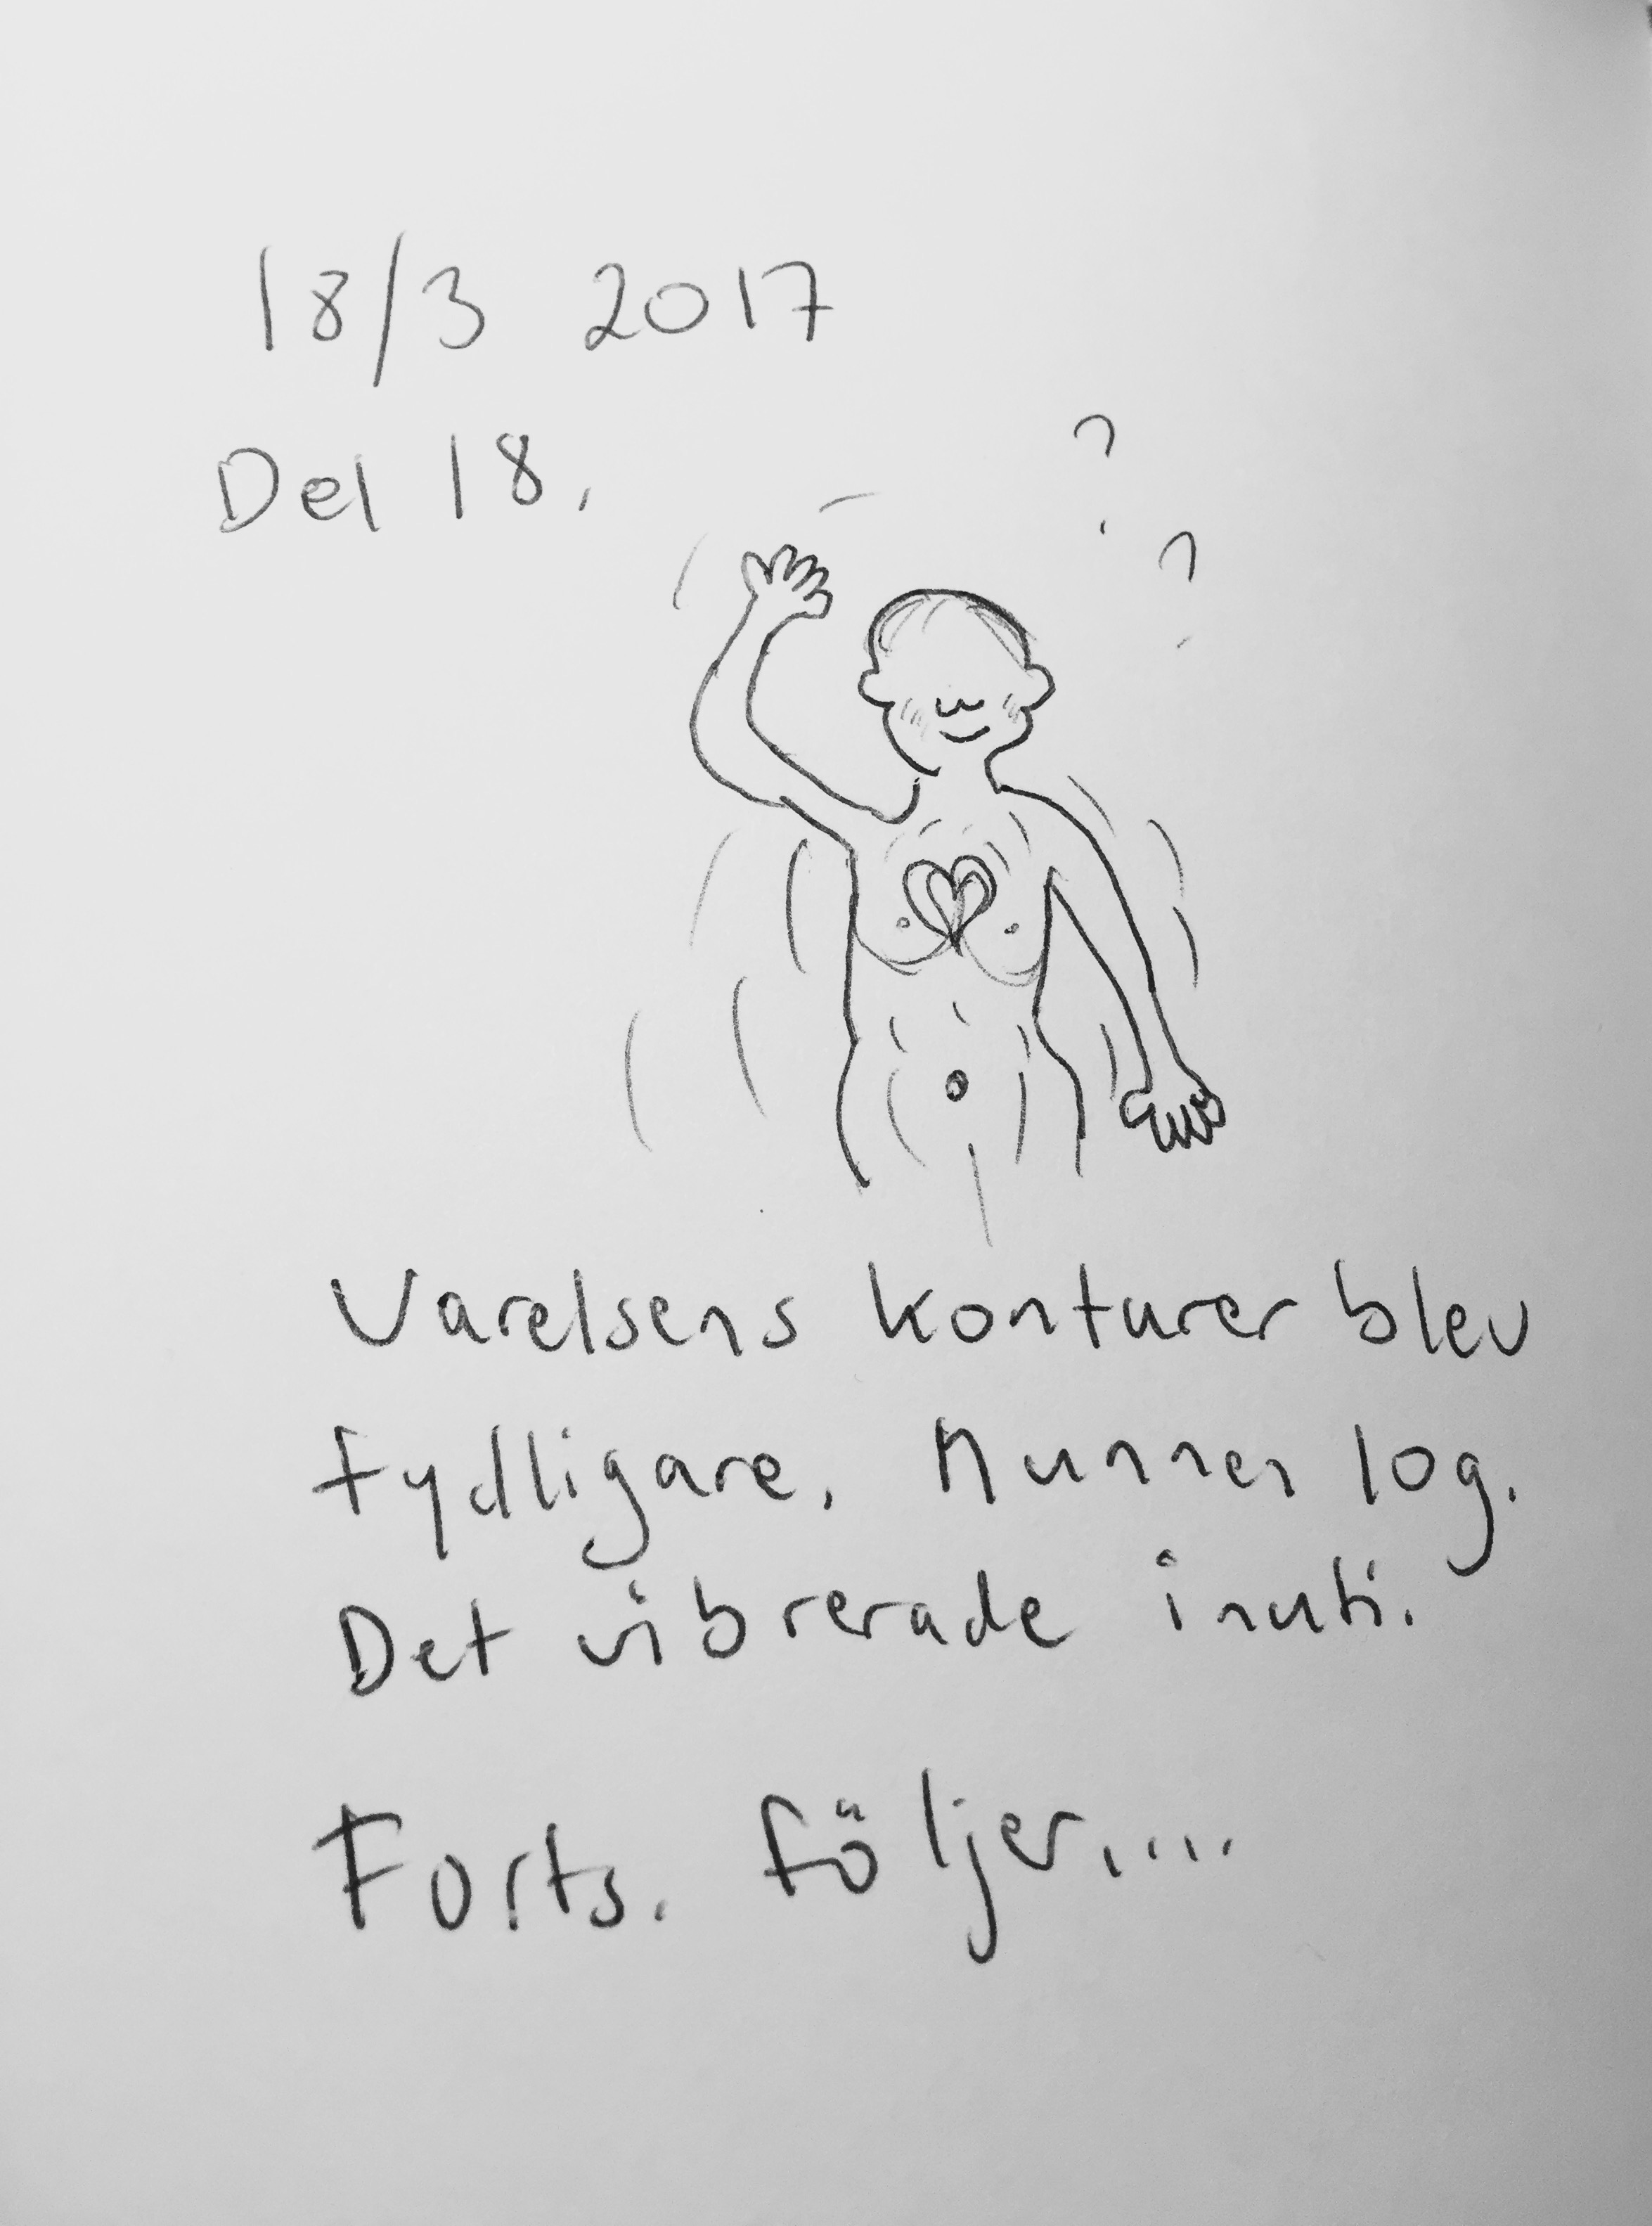 18/3 2017
Del 18.
?
?
Varelsens konturer blev
tydligare. Munnen log.
Det vibrerade inuti.
Forts. följer.....